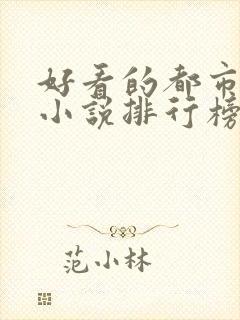 好看的都市
小说排行榜
范小林